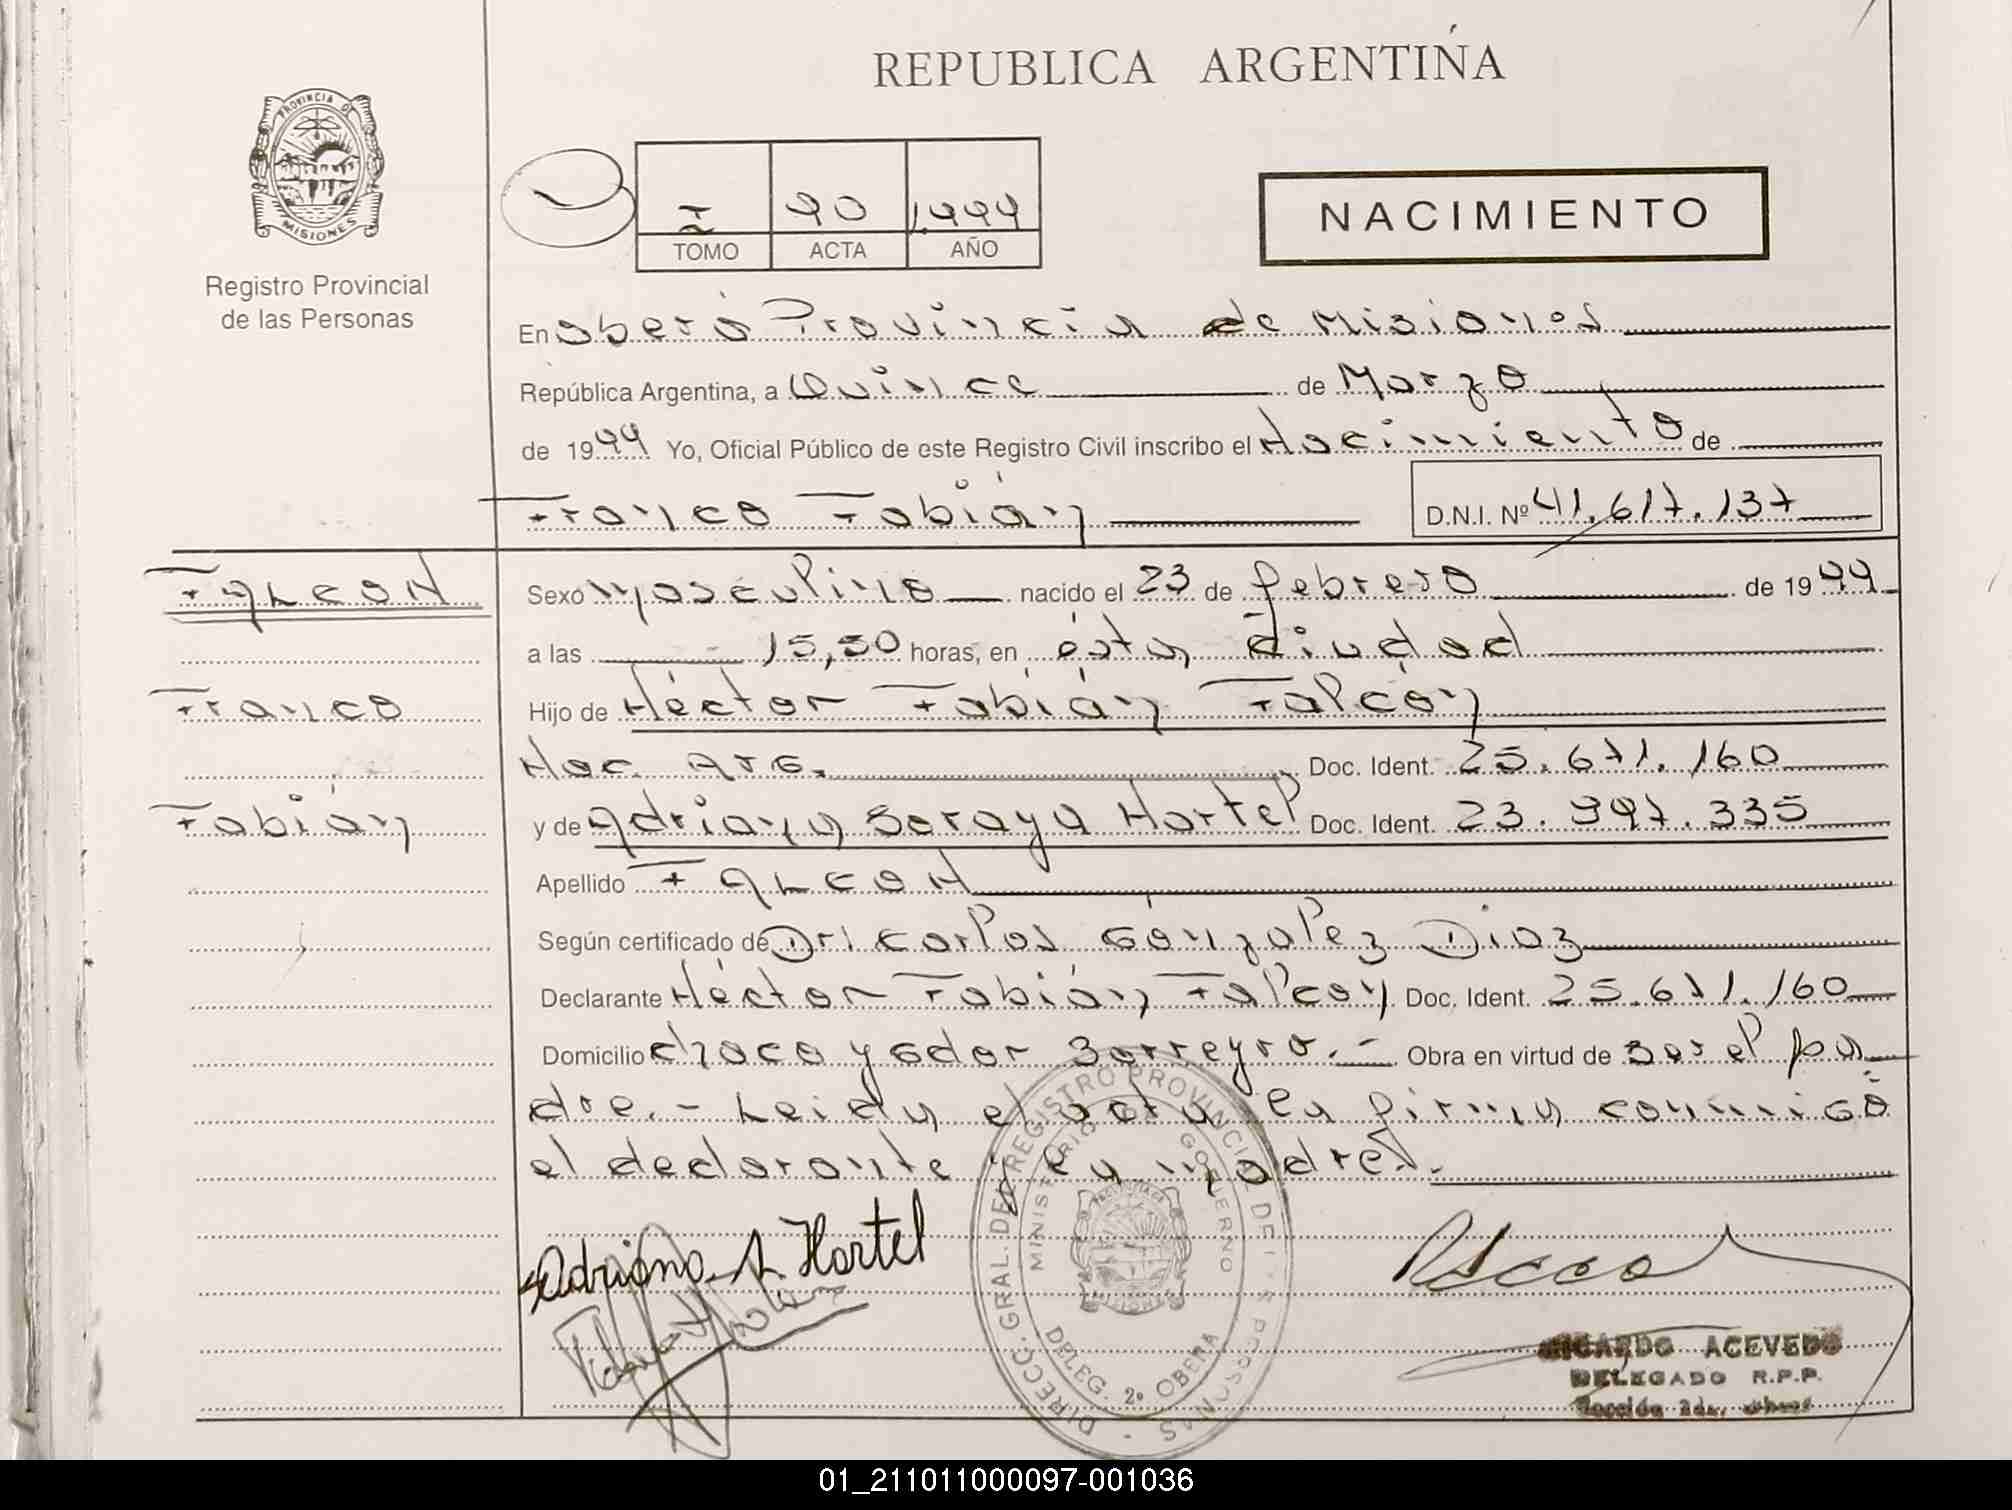 REPUBLICA ARGENTINA
PROVINCIA DE MISIONES
Registro Provincial
de las Personas
I 90 1.999
TOMO ACTA AÑO
NACIMIENTO
En Oberá Provincia de Misiones
República Argentina, a Quince de Marzo
de 1999 Yo, Oficial Público de este Registro Civil inscribo el Nacimiento de
Franco Fabián D.N.I. Nº 41.617.137
FALCON
Franco
Fabián
Sexo Masculino nacido el 23 de febrero de 1999
a las 15,50 horas, en ésta Ciudad
Hijo de Héctor Fabián Falcón
Nac. Arg. Doc. Ident. 25.671.160
y de Adriana Soraya Hortel Doc. Ident. 23.997.335
Apellido FALCON
Según certificado de Dr. Carlos Gónzalez Diaz
Declarante Héctor Fabián Falcón Doc. Ident. 25.671.160
Domicilio Chacayador Sorreyro.- Obra en virtud de ser el pa
dre.- Leida el acta la firma conmigo
el declarante y la madre.
Adriana S. Hortel
DIRECC. GRAL. DEL REGISTRO PROVINCIAL DE LAS PERSONAS
MINISTERIO GOBIERNO
DELEG. 2º OBERA
RICARDO ACEVEDO
DELEGADO R.P.P.
Sección 2da.
01_211011000097-001036